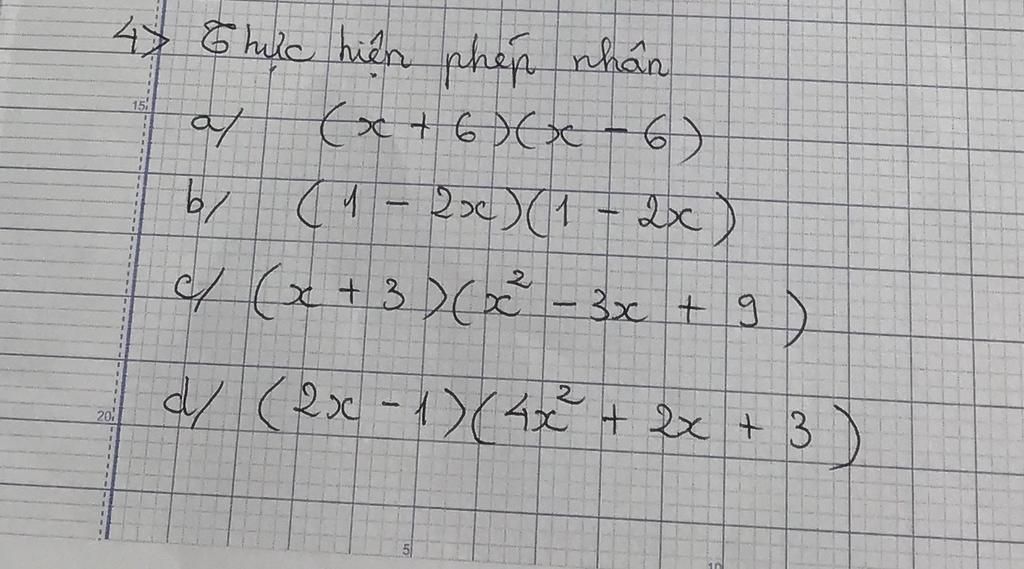 4> Thực hiện phép nhân
15
a/ (x + 6)(x - 6)
b/ (1 - 2x)(1 - 2x)
c/ (x + 3)(x² - 3x + 9)
d/ (2x - 1)(4x² + 2x + 3)
20
5
10